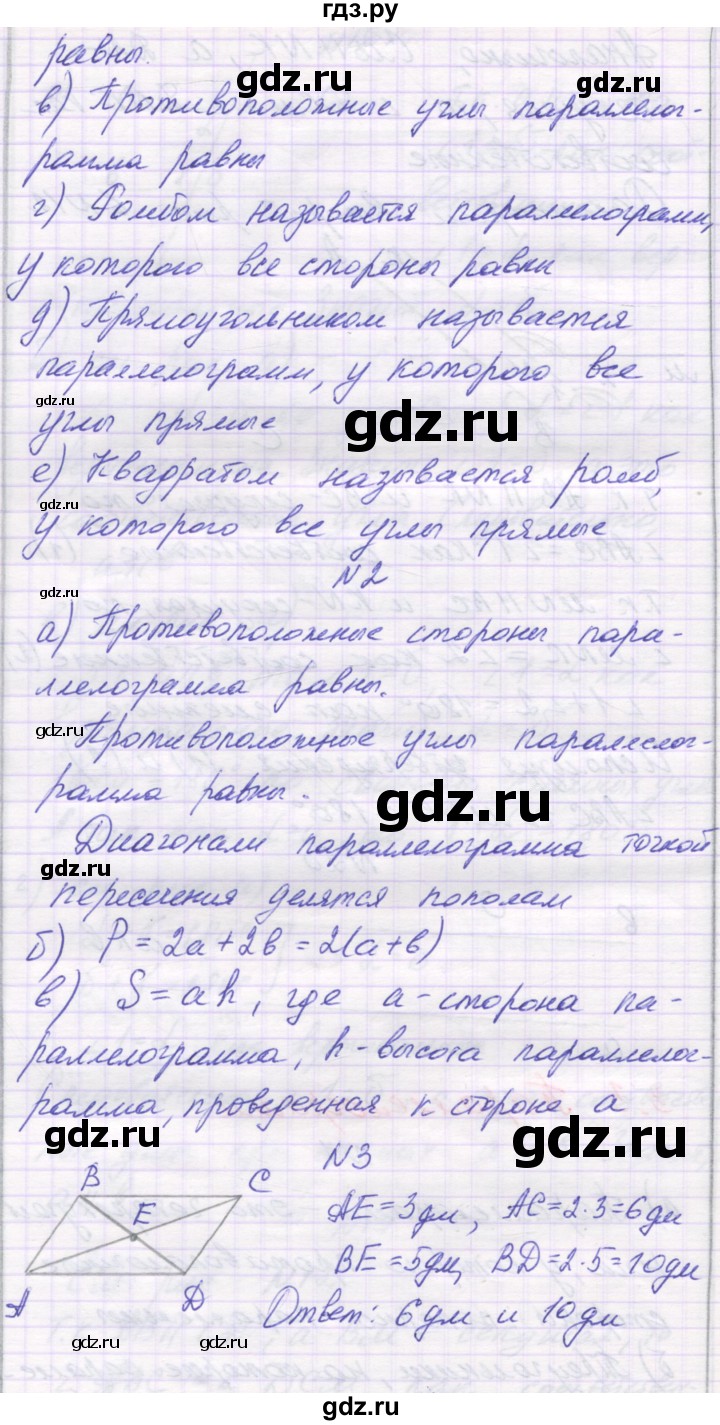 гдз.ру
равны.
gdz.ru
в) Противоположные углы параллелог-
рамма равны
gdz.ru
г) Ромбом называется параллелограмм,
у которого все стороны равны
gdz.ru
д) Прямоугольником называется
параллелограмм, у которого все
gdz.ru
углы прямые
gdz.ru
е) Квадратом называется ромб,
gdz.ru
у которого все углы прямые
N2
gdz.ru
а) Противоположные стороны пара-
ллелограмма равны.
gdz.ru
Противоположные углы параллелог-
рамма равны.
gdz.ru
Диагонали параллелограмма точкой
gdz.ru
пересечения делятся пополам
б) P=2a+2b=2(a+b)
в) S=ah, где a-сторона па-
gdz.ru
раллелограмма, h-высота параллелог-
рамма, проведенная к стороне a
gdz.ru
gdz.ru
N3
B C
E
AE=3дм, AC=2·3=6дм
BE=5дм, BD=2·5=10дм
A D
Ответ: 6дм и 10дм
gdz.ru
gdz.ru
gdz.ru